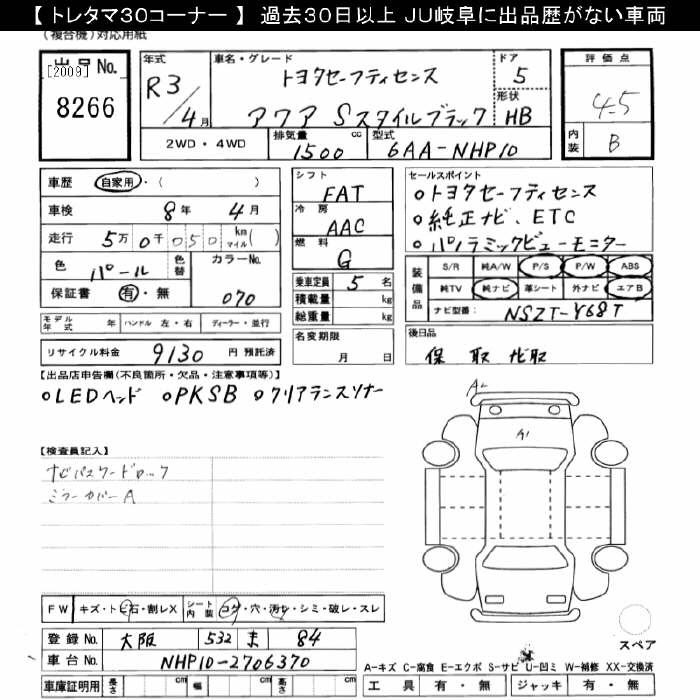 【 トレタマ30コーナー 】 過去30日以上 JU岐阜に出品歴がない車両
(複合機)対応用紙
出品No.
[2009]
8266
年式
R3/4月
車名・グレード
トヨタセーフティセンス
アクア Sスタイルブラック
ドア
5
形状
HB
評価点
4.5
内装
B
2WD・4WD
排気量
1500 cc
型式
6AA-NHP10
車歴 自家用・( )
車検 8年 4月
走行 5万0千050 km マイル( )
色 パール 色替 カラーNo.
保証書 有・無 070
シフト
FAT
冷房
AAC
燃料
G
乗車定員 5 名
積載量 kg
総重量 kg
セールスポイント
○トヨタセーフティセンス
○純正ナビ、ETC
○パノラミックビューモニター
装備品
S/R 純A/W P/S P/W ABS
純TV 純ナビ 革シート 外ナビ エアB
ナビ型番 NSZT-Y68T
モデル年式 年 ハンドル 左・右 ディーラー・並行
リサイクル料金 9130 円 預託済
名変期限
月 日
後日品
保 取 ナビ取
【出品店申告欄(不良箇所・欠品・注意事項等)】
○LEDヘッド ○PKSB ○クリアランスソナー
【検査員記入】
ナビパスワードロック
ミラーカバーA
A1
FW キズ・トビ石・割レX シート内装 コゲ・穴・汚レ・シミ・破レ・スレ
登録No. 大阪 532 ま 84
車台No. NHP10-2706370
車庫証明用 長さ cm 幅 cm 高さ cm
スペア
A-キズ C-腐食 E-エクボ S-サビ U-凹ミ W-補修 XX-交換済
工具 有・無 ジャッキ 有・無